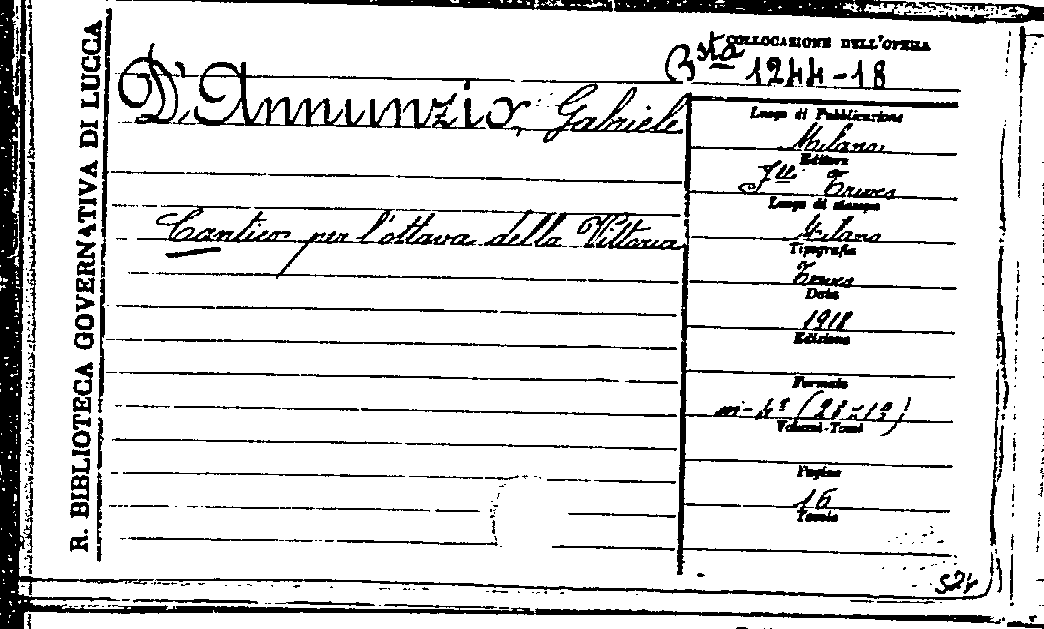 R. BIBLIOTECA GOVERNATIVA DI LUCCA
COLLOCAZIONE DELL'OPERA
Bsta 1244-18
D'Annunzio, Gabriele
Luogo di Pubblicazione
Milano
Editore
Flli Treves
Luogo di stampa
Milano
Cantico per l'ottava della Vittoria
Tipografia
Treves
Data
1918
Edizione
Formato
in-4º
Volumi-Tomi
Pagine
16
Tavole
524